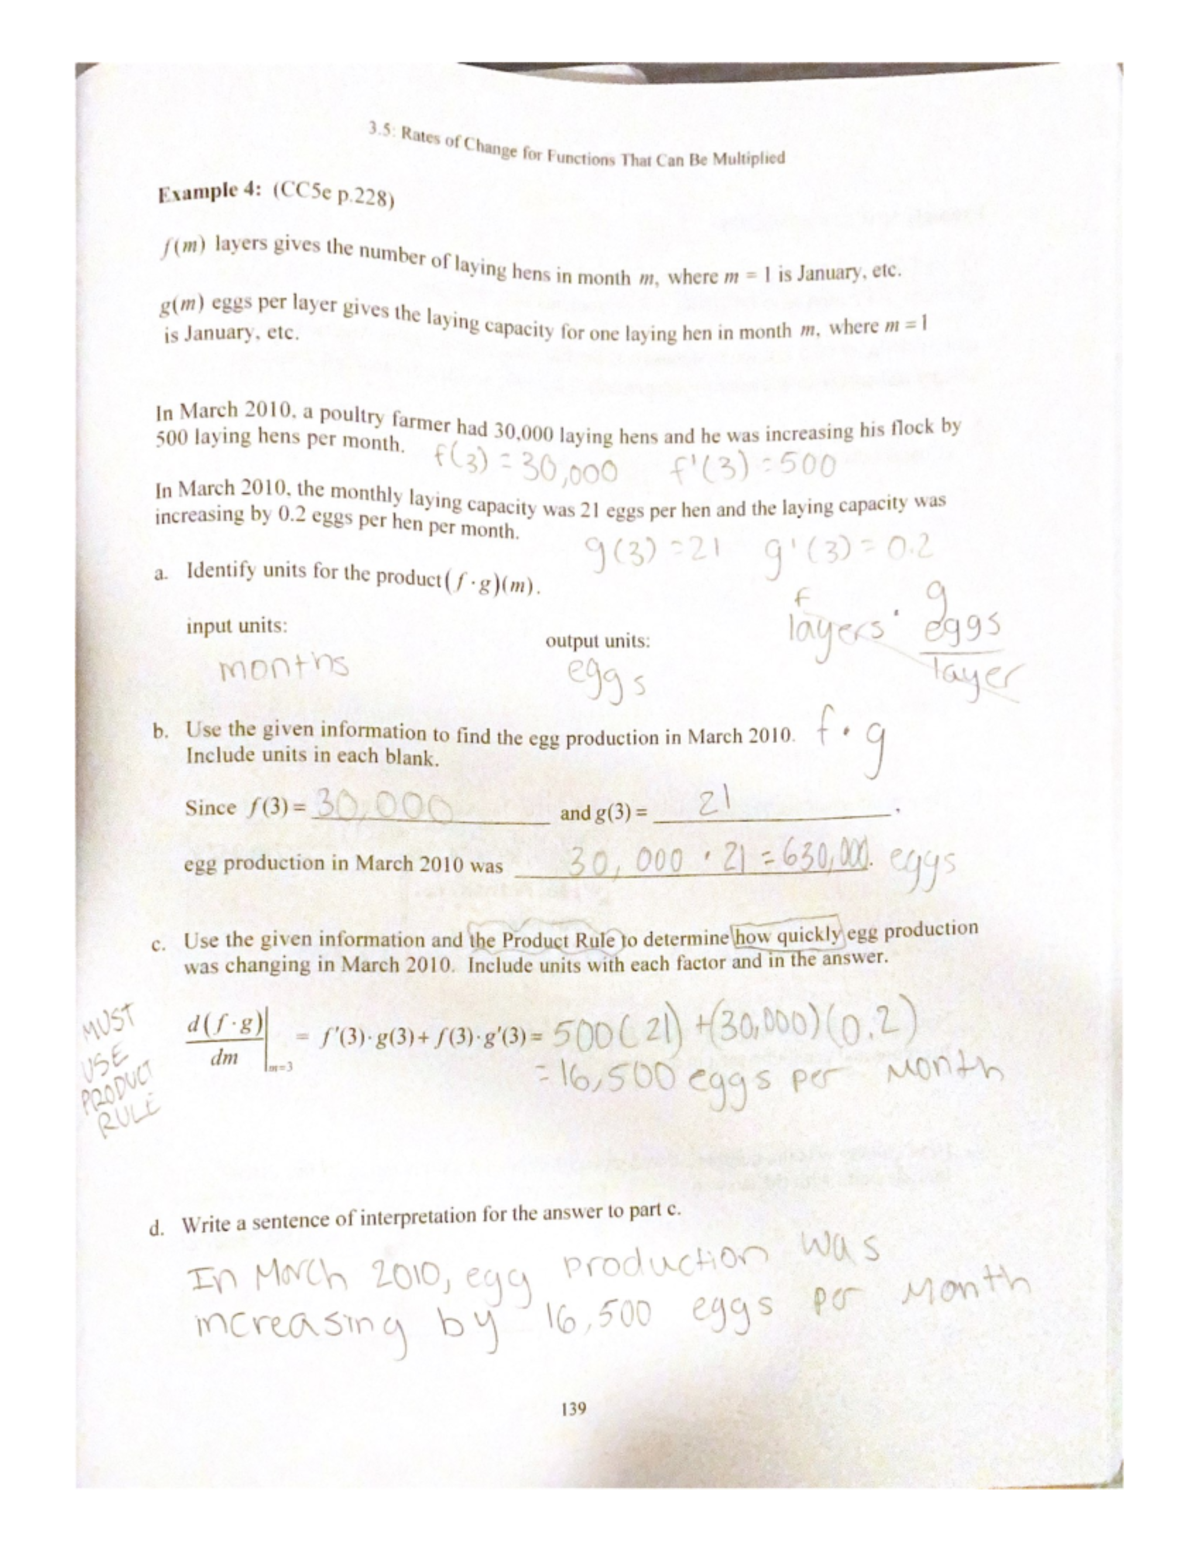 3.5: Rates of Change for Functions That Can Be Multiplied
Example 4: (CC5e p.228)
f(m) layers gives the number of laying hens in month m, where m = 1 is January, etc.
g(m) eggs per layer gives the laying capacity for one laying hen in month m, where m = 1
is January, etc.
In March 2010, a poultry farmer had 30,000 laying hens and he was increasing his flock by
500 laying hens per month.
f(3) = 30,000 f'(3) = 500
In March 2010, the monthly laying capacity was 21 eggs per hen and the laying capacity was
increasing by 0.2 eggs per hen per month.
g(3) = 21 g'(3) = 0.2
a. Identify units for the product (f · g)(m).
f g
layers · eggs
layer
input units: output units:
months eggs
b. Use the given information to find the egg production in March 2010. f · g
Include units in each blank.
Since f(3) = 30,000 and g(3) = 21 .
egg production in March 2010 was 30,000 · 21 = 630,000. eggs
c. Use the given information and the Product Rule to determine how quickly egg production
was changing in March 2010. Include units with each factor and in the answer.
MUST
USE
PRODUCT
RULE
d(f·g)
dm |m=3 = f'(3)·g(3) + f(3)·g'(3) = 500(21) + (30,000)(0.2)
= 16,500 eggs per month
d. Write a sentence of interpretation for the answer to part c.
In March 2010, egg production was
increasing by 16,500 eggs per month
139